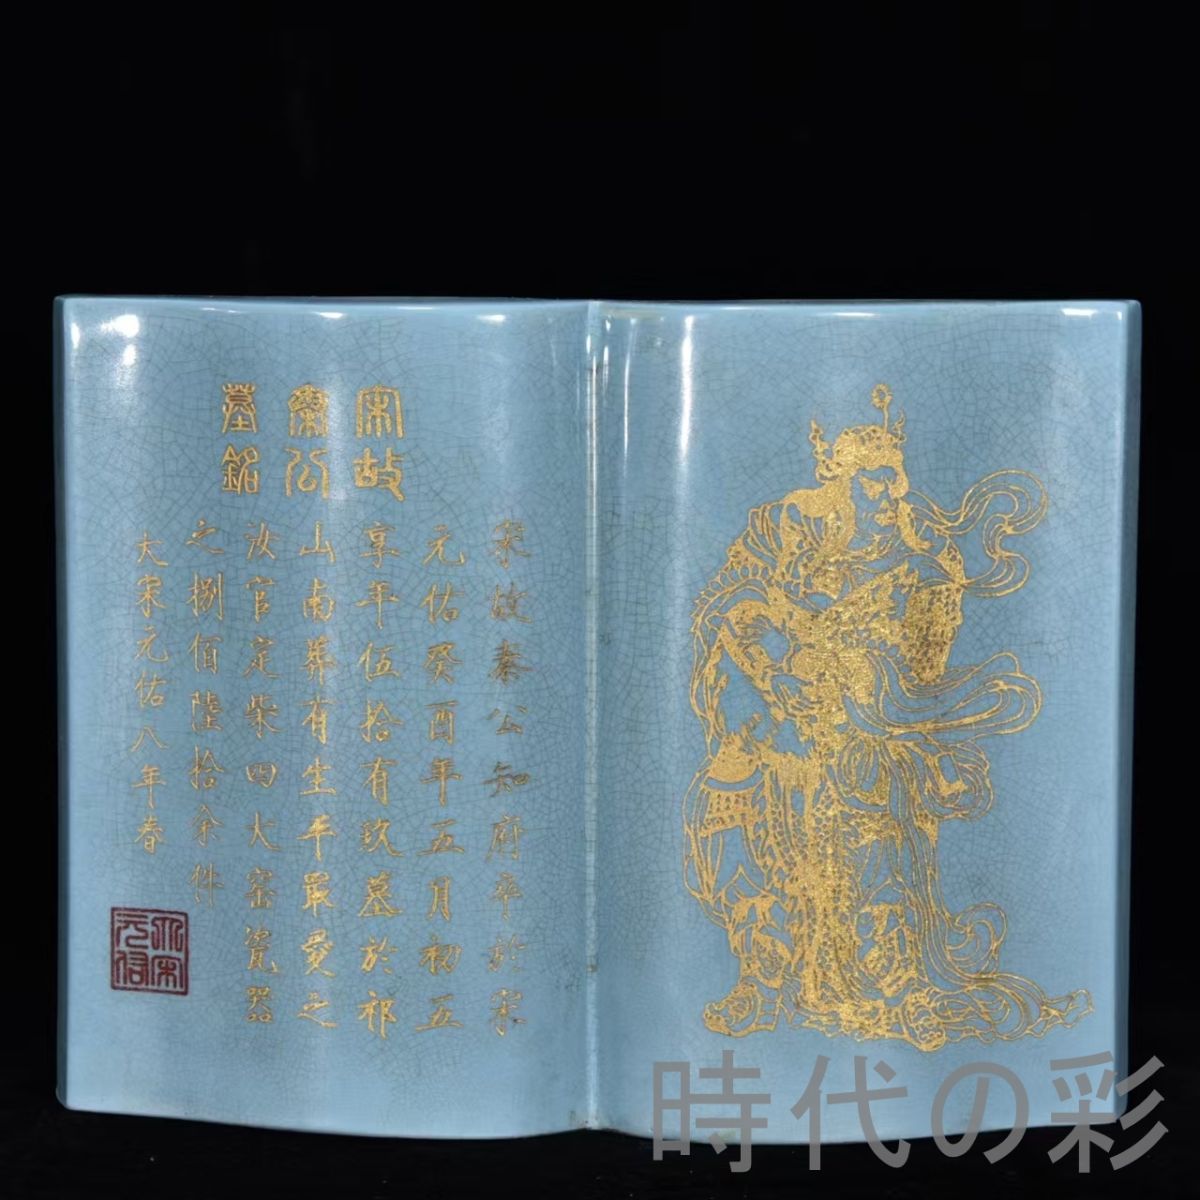 宋故
秦公
墓銘
宋故秦公知府卒於宋
元佑癸酉年五月初五
享年伍拾有玖墓於祁
山南葬有生平最愛之
汝官定柴四大窑瓷器
之捌佰陸拾余件
大宋元佑八年春
大宋
元佑
時代の彩